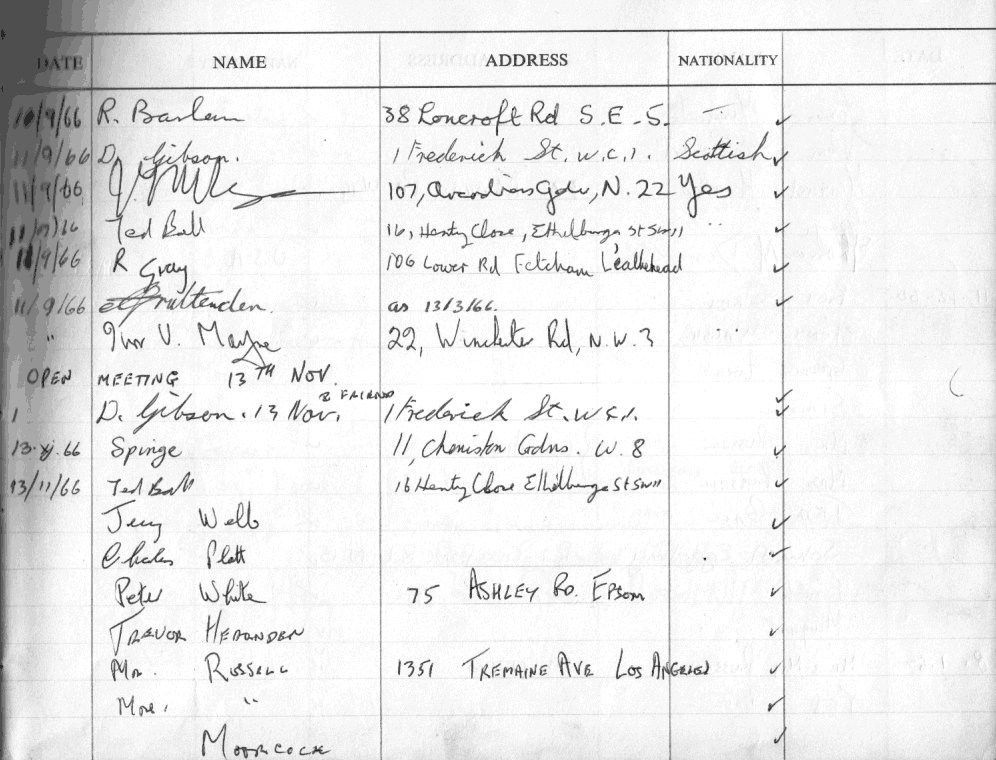 DATE NAME ADDRESS NATIONALITY
10/9/66 R. 38 Loncroft Rd S.E.5. —
11/9/66 D. Gibson. 1 Frederick St. W.C.1. Scottish
11/9/66 107, Gdns, N. 22 Yes
11/9/66 Ted Ball 16, Henty Close, Ethelburga St SW11 "
11/9/66 R Gray 106 Lower Rd Fetcham Leatherhead
11/9/66 Cruttenden. as 13/3/66.
" Ivor V. Mayne 22, Winchester Rd, N.W.3 "
OPEN MEETING 13TH NOV.
& FRIEND
1 D. Gibson. 13 Nov. 1 Frederick St. W.C.1.
13.xj.66 Spinge 11, Cheniston Gdns. W.8
13/11/66 Ted Ball 16 Henty Close Ethelburga St SW11
Jerry Webb
Charles Platt
Peter White 75 ASHLEY RD. EPSOM
TREVOR
Mr. RUSSELL 1351 TREMAINE AVE LOS ANGELES
Mrs. "
MOORCOCK